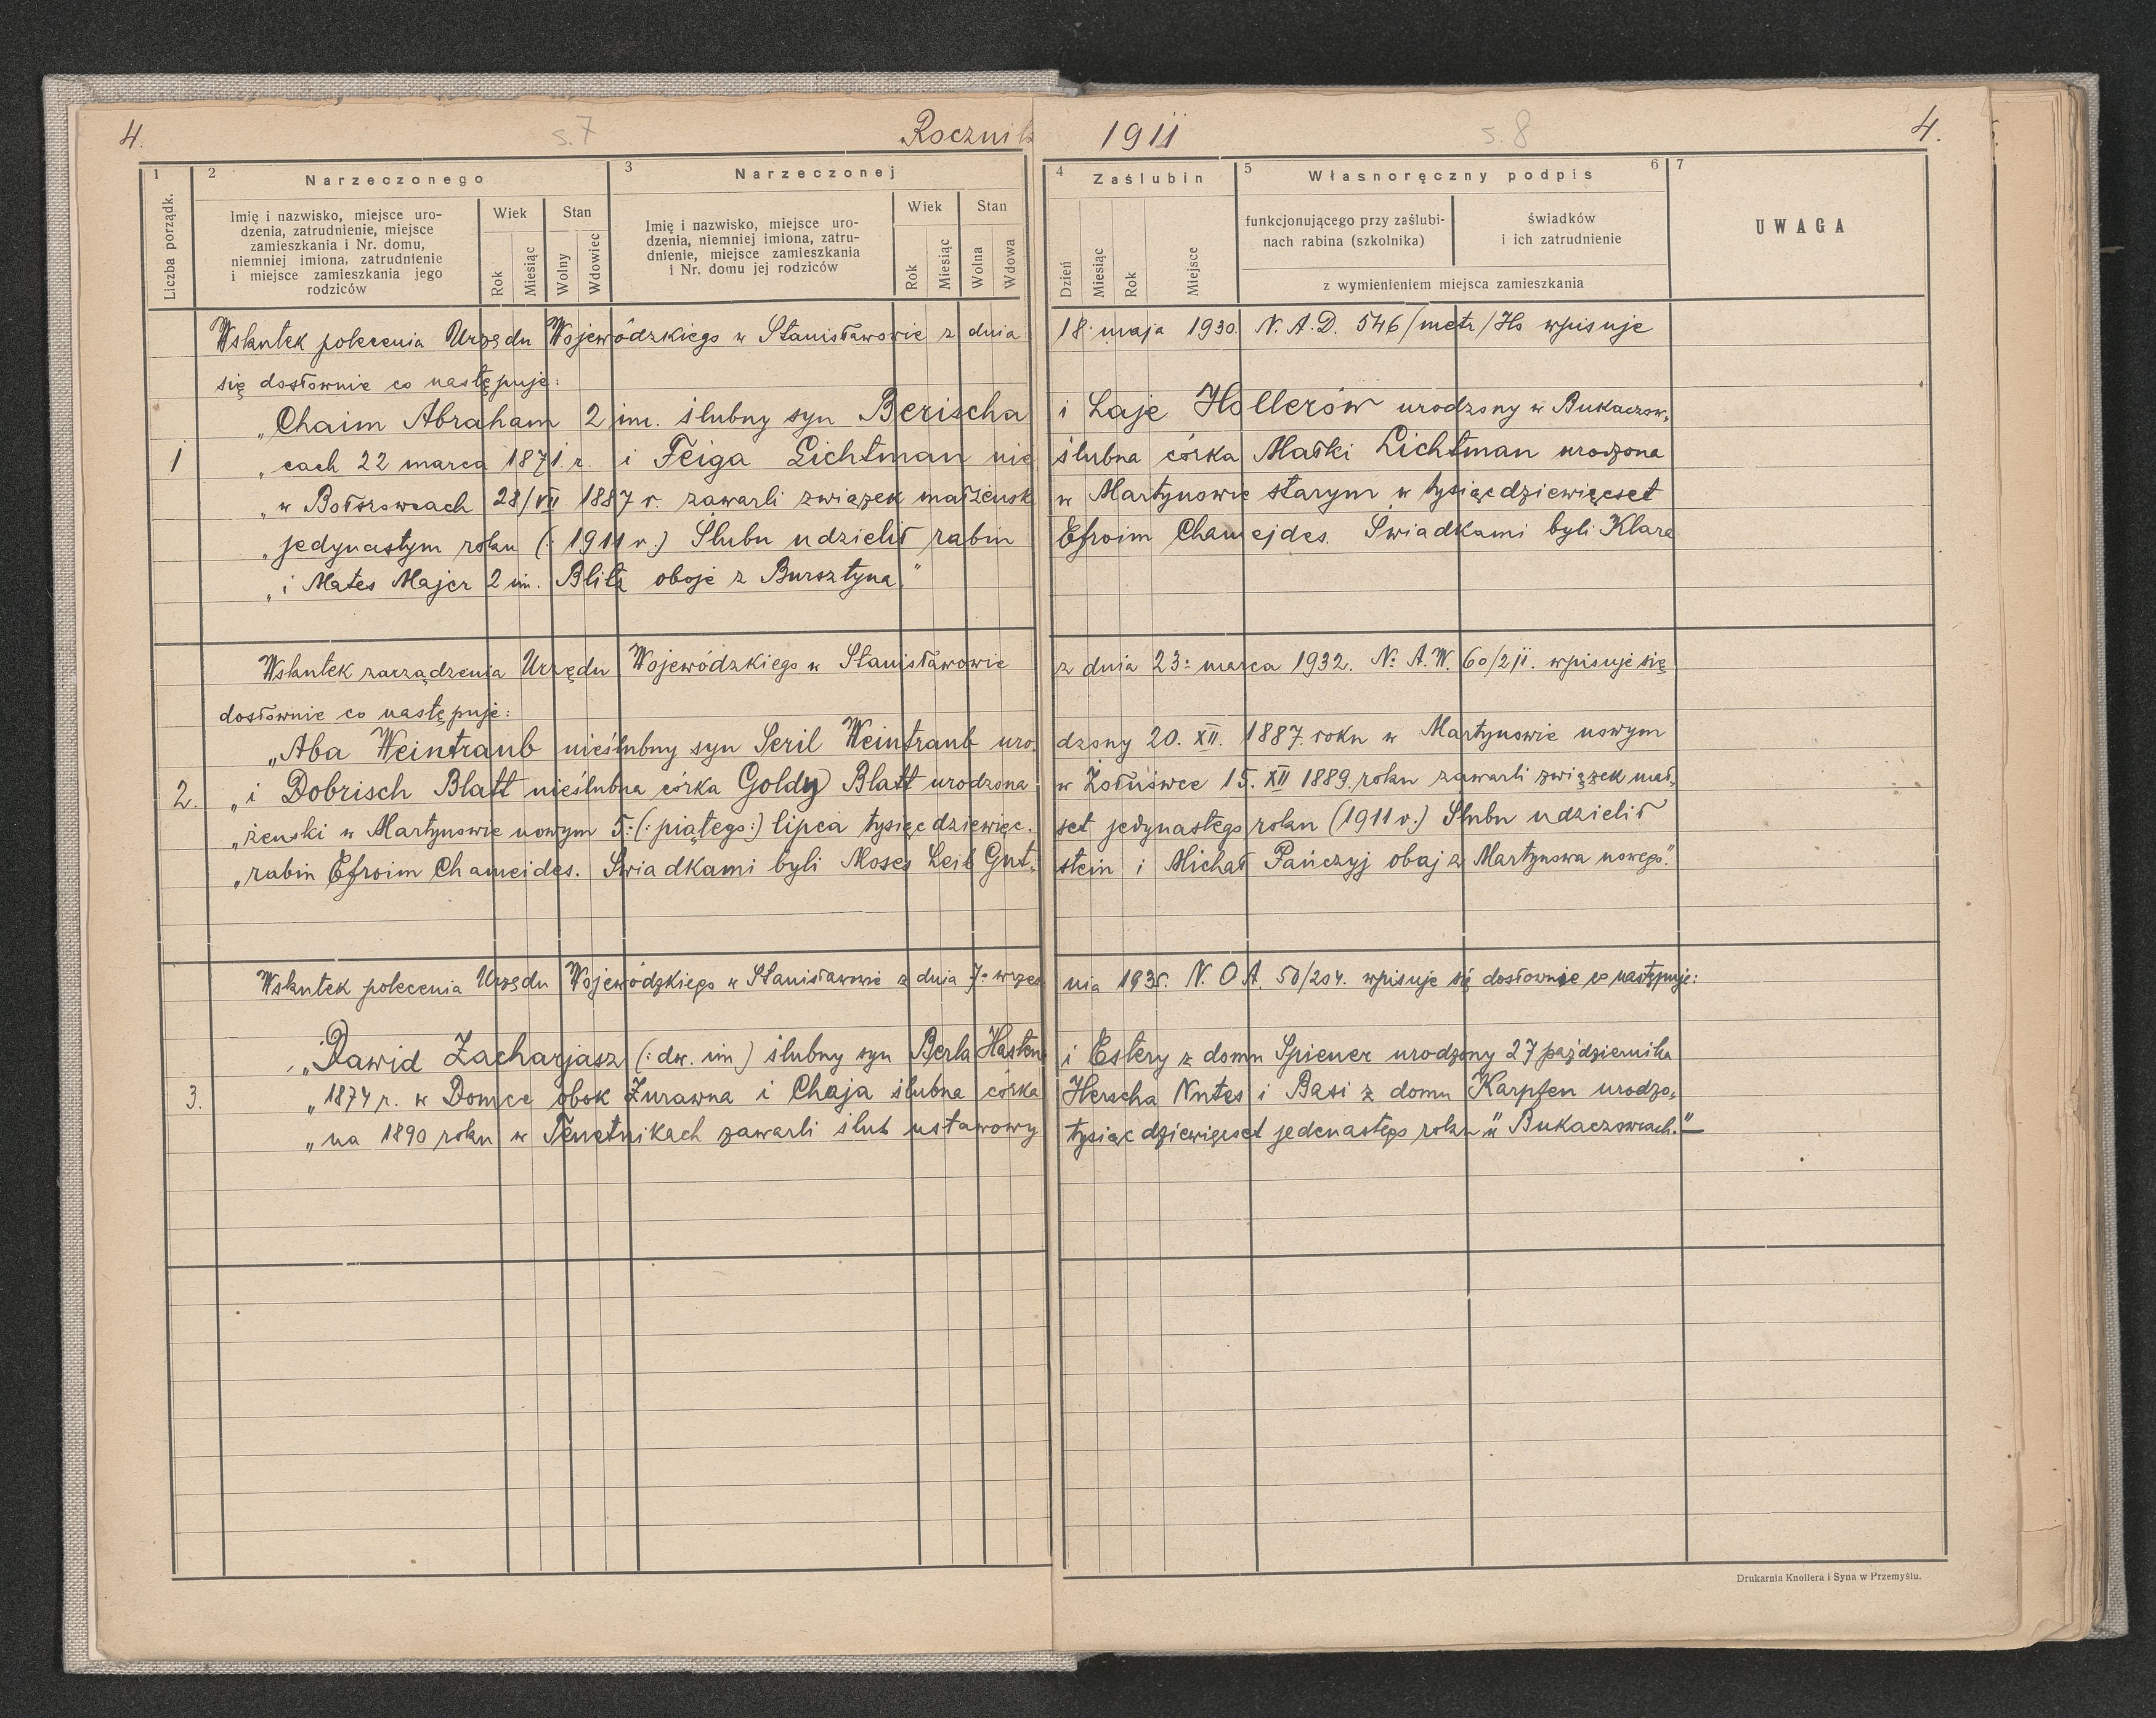 4. s. 7 Rocznik 1911 s. 8 4.
1 2 Narzeczonego 3 Narzeczonej 4 Zaślubin 5 Własnoręczny podpis 6 7
Liczba porządk.
Imię i nazwisko, miejsce uro-
dzenia, zatrudnienie, miejsce
zamieszkania i Nr. domu,
niemniej imiona, zatrudnienie
i miejsce zamieszkania jego
rodziców
Wiek Stan
Rok Miesiąc Wolny Wdowiec
Imię i nazwisko, miejsce uro-
dzenia, niemniej imiona, zatru-
dnienie, miejsce zamieszkania
i Nr. domu jej rodziców
Wiek Stan
Rok Miesiąc Wolna Wdowa
Dzień Miesiąc Rok Miejsce
funkcjonującego przy zaślubi-
nach rabina (szkolnika)
świadków
i ich zatrudnienie
z wymienieniem miejsca zamieszkania
UWAGA
Wskutek polecenia Urzędu Wojewódzkiego w Stanisławowie z dnia 18. maja 1930. N. A. D. 546/metr/Ho wpisuje
się dosłownie co następuje:
„Chaim Abraham 2 im. ślubny syn Berischa i Laje Hollerów urodzony w Bukaczow„
1 „cach 22 marca 1871. r. i Feiga Lichtman nie ślubna córka Małki Lichtman urodzona
„w Bołszowcach 28/VII 1887 r. zawarli związek małżeńsk w Martynowie starym w tysiącdziewięćset
„jedynastym roku (: 1911 r.) Ślubu udzielił rabin Efroim Chameides. Świadkami byli Klara
„i Mates Majer 2 im. Blitz oboje z Bursztyna."
Wskutek zarządzenia Urzędu Wojewódzkiego w Stanisławowie z dnia 23: marca 1932. N: A. W. 60/2/II. wpisuje się
dosłownie co następuje:
„Aba Weintraub nieślubny syn Seril Weintraub uro„ dzony 20. XII. 1887. roku w Martynowie nowym
2. „i Dobrisch Blatt nieślubna córka Goldy Blatt urodzona w Żołnówce 15. XII 1889. roku zawarli związek mał„
„żeński w Martynowie nowym 5: (: piątego:) lipca tysiącdziewięć. set jedynastego roku (1911 r.) Ślubu udzielił
„rabin Efroim Chameides. Świadkami byli Moses Leib Gut„ stein i Michał Pańczyj obaj z Martynowa nowego."
Wskutek polecenia Urzędu Wojewódzkiego w Stanisławowie z dnia 7: wrześ nia 1935. N. O A. 50/204. wpisuje się dosłownie co następuje:
„Dawid Zacharjasz (: dw. im) ślubny syn Berla Hasten i Estery z domu Spiener urodzony 27 października
3. „1874 r. w Domce obok Żurawna i Chaja ślubna córka Herscha Nutes i Basi z domu Karpfen urodzo„
„na 1890 roku w Tenetnikach zawarli ślub ustawowy tysiąc dziewięćset jedenastego roku w Bukaczowcach."
Drukarnia Knollera i Syna w Przemyślu.